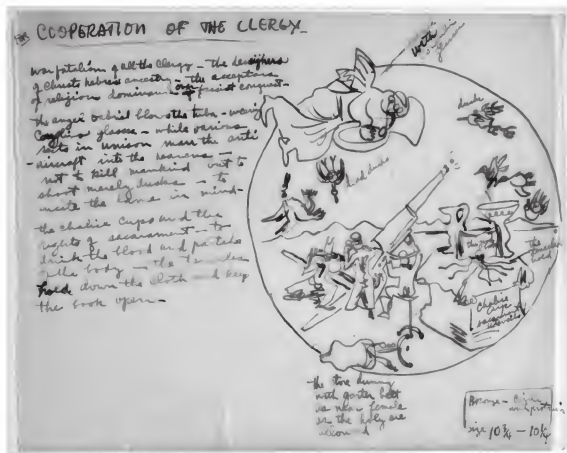 COOPERATION OF THE CLERGY
war fatalism of all the Clergy - the denighers
of Christs hebrew ancestry - the acceptors
of religion dominance over fascist conquest -
the angel Gabriel blows the tuba - wearing
glasses - while various
sects in unison man the anti
- aircraft into the heavens -
not to kill mankind but to
shoot merely ducks - to
the home in mind -
the chalice cups and the
rights of sacrament - to
drink the blood and partake
of the body - the
hold down the cloth and keep
the book open -
with
glasses
ducks
ducks
the
hold
Chalice
cups
sacrament
the tire dummy
with garter belt
as near female
as the holy are
allowed
Bronze -
size 10 3/4 - 10 1/4